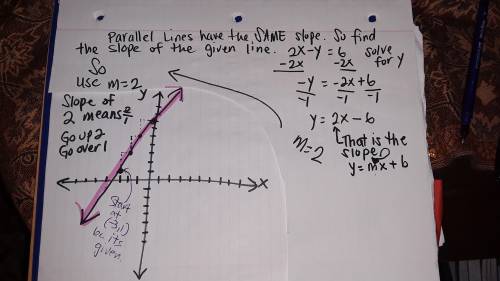 Parallel Lines have the SAME slope. So find
the slope of the given line. 2x-y = 6 solve for y
-2x -2x
So
use m=2
-y = -2x+6
-1 -1 -1
y = 2x - 6
That is the slope
m=2
y=mx+b
Slope of
2 means 2/1
Go up 2
Go over 1
y
x
Start
at
(-3,1)
bc its
given